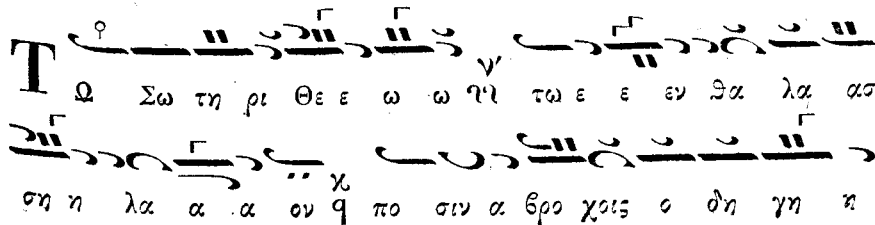 ΤΩ Σω τη ρι Θε ε ω ω τω ε ε εν θα λα ασ
ση η λα α α ον πο σιν α βρο χοις ο δη γη η